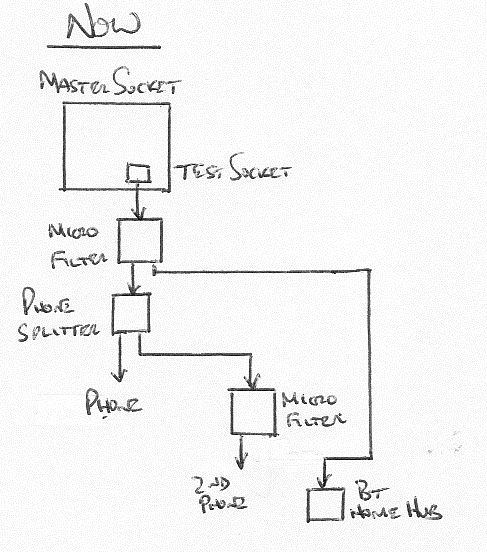 NOW
MASTER SOCKET
TEST SOCKET
MICRO
FILTER
PHONE
SPLITTER
PHONE
MICRO
FILTER
2ND
PHONE
BT
HOME HUB